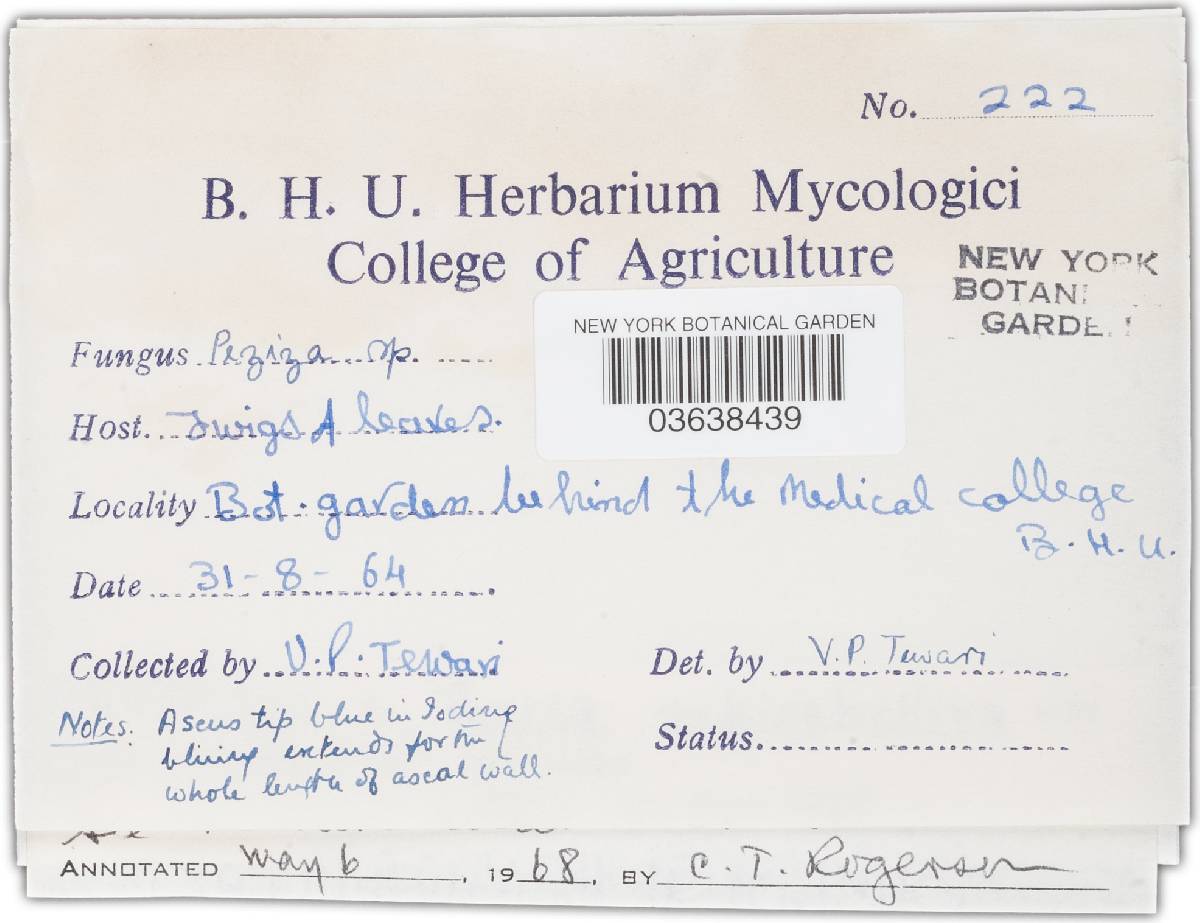 No. 222
B. H. U. Herbarium Mycologici
College of Agriculture
NEW YORK
BOTANI
GARDE
NEW YORK BOTANICAL GARDEN
03638439
Fungus Peziza sp.
Host. Twigs & leaves.
Locality Bot. garden behind the Medical college
B. H. U.
Date 31-8-64
Collected by V. P. Tewari
Det. by V. P. Tewari
Notes: Ascus tip blue in Iodine
bluing extends for the
whole length of ascal wall.
Status.
ANNOTATED May 6, 1968, BY C. T. Rogerson